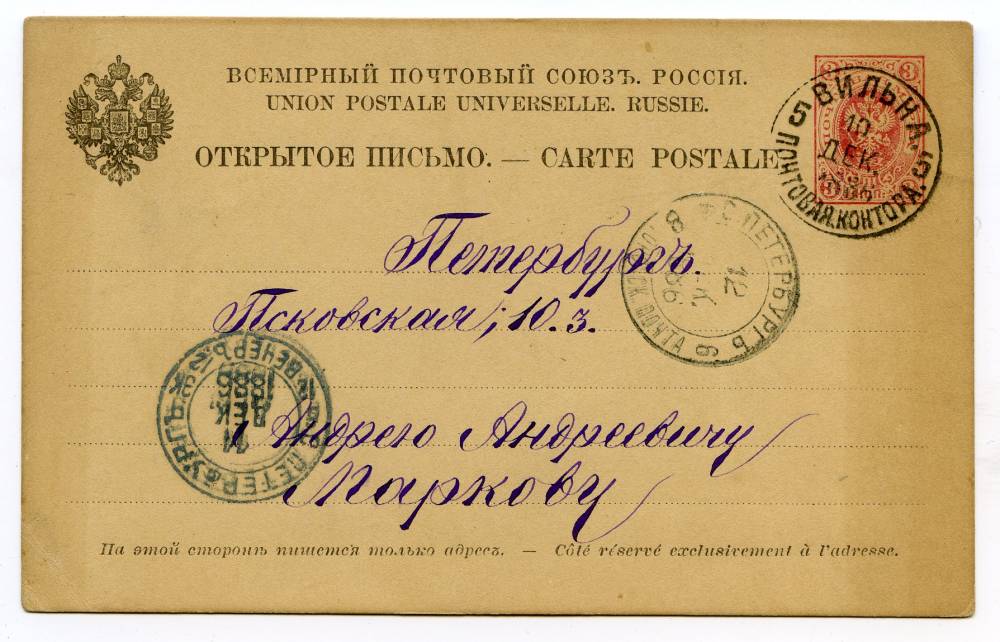 ВСЕМІРНЫЙ ПОЧТОВЫЙ СОЮЗЪ. РОССІЯ.
UNION POSTALE UNIVERSELLE. RUSSIE.
ОТКРЫТОЕ ПИСЬМО. — CARTE POSTALE
3 3
3
5 ВИЛЬНА. 5
10
ДЕК.
1886
ПОЧТОВАЯ КОНТОРА.
С. ПЕТЕРБУРГЪ
8 6
12
86
ПОЧТА
Петербургъ.
Псковская, 10. з.
ПЕТЕРБУРГЪ
11
ДЕК.
1886
ВЕЧЕРЪ
Андрею Андреевичу
Маркову
На этой сторонѣ пишется только адресъ. — Côté réservé exclusivement à l'adresse.